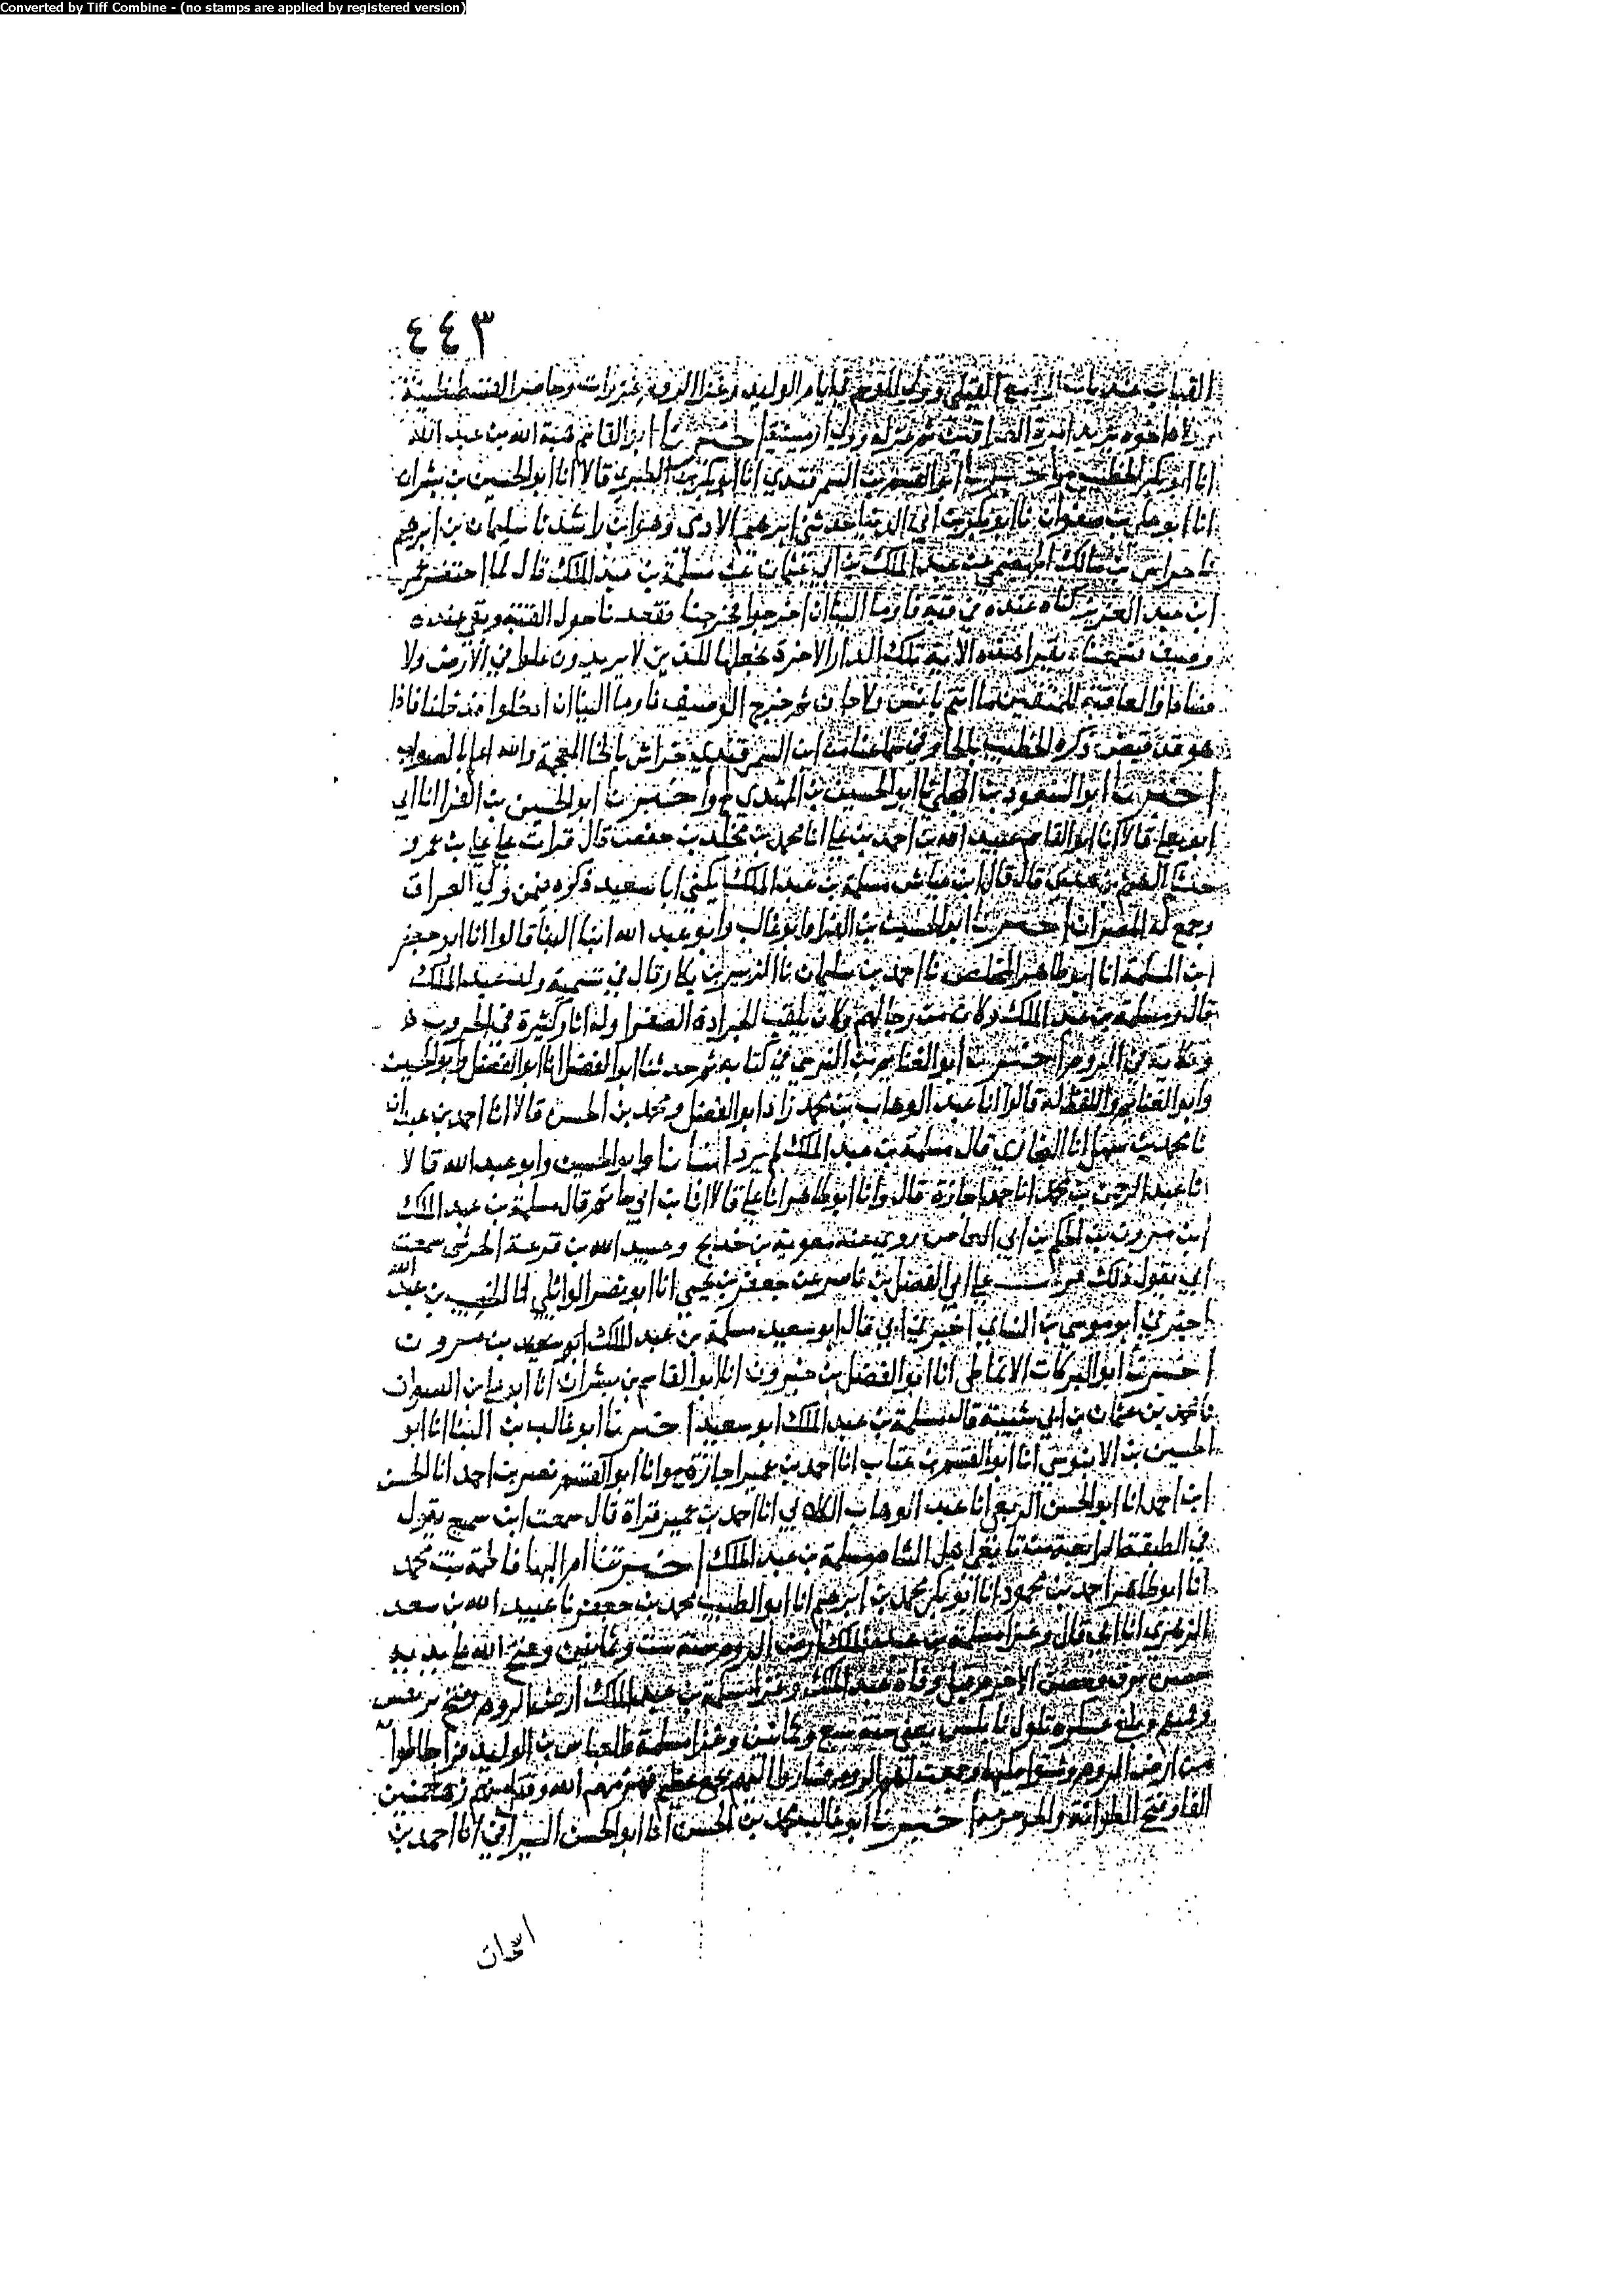 Converted by Tiff Combine - (no stamps are applied by registered version)
٤٤٣
القباب عند باب الجامع القبلي وولي الموسم في أيام الوليد وغزا الروم غزوات وحاصر القسطنطينية
وولاه أخوه يزيد امرة العراقين ثم عزله وولي ارمينية اخبرنا ابو القاسم هبة الله بن عبد الله
انا ابو بكر الخطيب ح واخبرنا ابو القسم بن السمرقندي انا ابو بكر بن الطبري قالا انا ابو الحسين بن بشران
انا ابو علي بن صفوان نا ابو بكر بن ابي الدنيا حدثني ابرهيم الادمي وهو ابن راشد نا سليمان بن ابرهيم
نا حراس بن مالك الجهضمي عن عبد الملك بن ابي عثمان عن مسلمة بن عبد الملك قال لما احتضر عمر
ابن عبد العزيز كنا عنده في قبة فاوما الينا ان اخرجوا فخرجنا فقعدنا حول القبة وبقي عنده
وصيف فسمعناه يقرا هذه الاية تلك الدار الاخرة نجعلها للذين لا يريدون علوا في الارض ولا
فسادا والعاقبة للمتقين ما انتم بانس ولا جان ثم خرج الوصيف فاوما الينا ان ادخلوا فدخلنا فاذا
هو قد قبض ذكره الخطيب بالحا وفي سماعنا من ابن السمرقندي خراش بالخا المعجمة والله اعلم بالصواب
اخبرنا ابو السعود بن المجلي نا ابو الحسين بن المهتدي ح واخبرنا ابو الحسين بن الفرا انا ابي
ابو يعلى قالا انا ابو القاسم عبيد الله بن احمد بن علي انا محمد بن مخلد بن حفص قال قرات على علي بن عمرو
حدثكم الهيثم بن عدي قال قال ابن عياش مسلمة بن عبد الملك يكنى ابا سعيد ذكره فيمن ولي العراق
وجمع له المصران اخبرنا ابو الحسين بن الفرا وابو غالب وابو عبد الله ابنا البنا قالوا انا ابو جعفر
ابن المسلمة انا ابو طاهر المخلص نا احمد بن سليمان نا الزبير بن بكار قال في تسمية ولد عبد الملك
قال ومسلمة بن عبد الملك وكان من رجالهم وكان يلقب الجرادة الصفرا وله اثار كثيرة في الحروب و
ونكاية في الروم اخبرنا ابو الغنايم بن النرسي في كتابه ثم حدثنا ابو الفضل انا ابو الفضل وابو الحسين
وابو الغنايم واللفظ له قالوا انا عبد الوهاب بن محمد زاد ابو الفضل ومحمد بن الحسن قالا انا احمد بن عبدان
نا محمد بن سهل انا البخاري قال مسلمة بن عبد الملك لم يزد انبانا ابو الحسين وابو عبد الله قالا
انا عبد الرحمن بن محمد انا حمد اجازة قال وانا ابو طاهر انا علي قالا انا بن ابي حاتم قال مسلمة بن عبد الملك
ابن مروان بن الحكم بن ابي العاص روى عنه معوية بن خديج وعبيد الله بن قزعة الحرشي سمعت
ابي يقول ذلك قرات على ابي الفضل بن ناصر عن جعفر بن يحيى انا ابو نصر الوائلي انا الخصيب بن عبد الله
اخبرني ابو موسى بن النساي اخبرني ابي قال ابو سعيد مسلمة بن عبد الملك ابو سعيد بن مروان
اخبرنا ابو البركات الانماطي انا ابو الفضل بن خيرون انا ابو القاسم بن بشران انا ابو علي ابن الصواف
نا محمد بن عثمان بن ابي شيبة قال مسلمة بن عبد الملك ابو سعيد اخبرنا ابو غالب بن البنا انا ابو
الحسين بن الابنوسي انا ابو القسم بن عتاب انا احمد بن عمير اجازة ح وانا ابو القسم نصر بن احمد انا الحسن
ابن احمد انا ابو الحسن الربعي انا عبد الوهاب الكلابي انا احمد بن عمير قراة قال سمعت ابن سميع يقول
في الطبقة الرابعة من تابعي اهل الشام مسلمة بن عبد الملك اخبرتنا ام البها فاطمة بنت محمد
انا ابو طاهر احمد بن محمود انا ابو بكر محمد بن ابرهيم انا ابو الطيب محمد بن جعفر نا عبيد الله بن سعد
الزهري انا ابي قال وغزا مسلمة بن عبد الملك ارض الروم سنة ست وثمانين وفتح الله على يديه
حصن بولق وحصن الاخرم قبل وفاة عبد الملك وغزا مسلمة بن عبد الملك ارض الروم ففتح
وبلغ عسكره يعني سنة سبع وثمانين وغزا مسلمة والعباس بن الوليد
من ارض الروم وشتوا عليها وجمعت لهم الروم فساروا اليهم بجمع عظيم فهزمهم الله وقتل منهم زها خمسين
الفا وفتح الطوانة والجرجومة اخبرنا ابو غالب محمد بن الحسن انا ابو الحسن السيرافي انا احمد بن